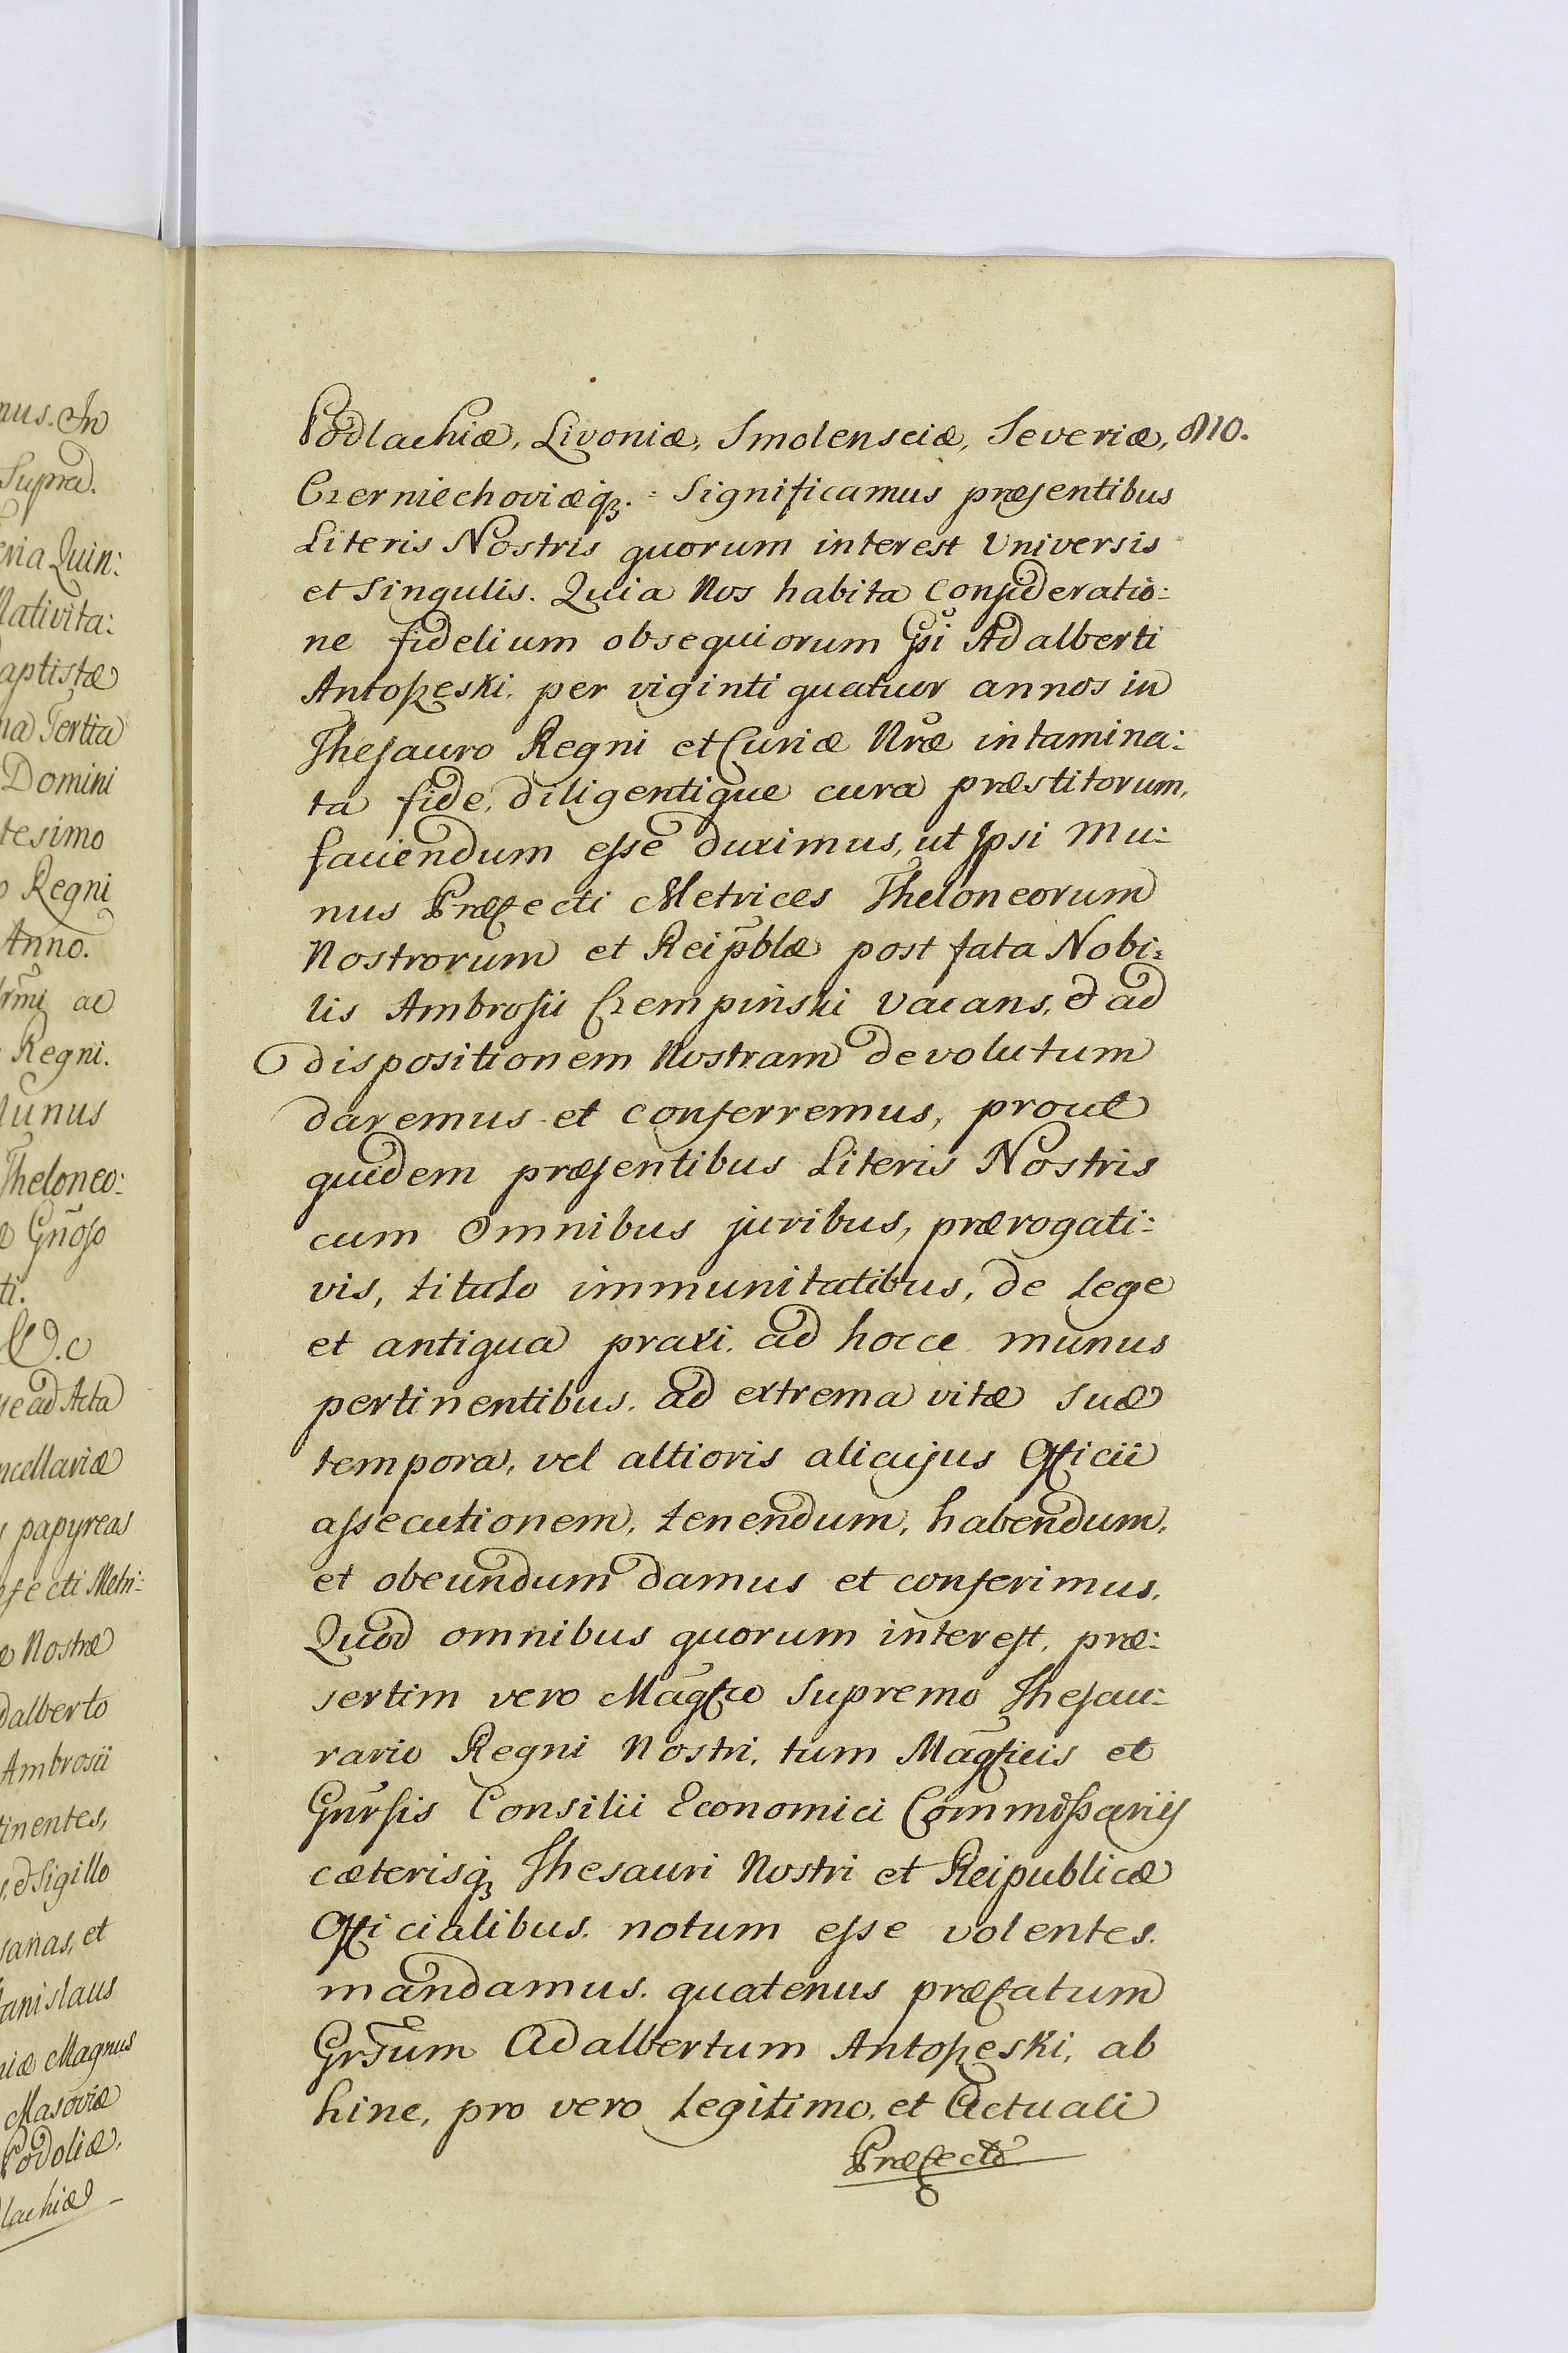 mus. In
Supra.
eria Quin:
Nativita:
aptistæ
na Tertia
Domini
tesimo
o Regni
Anno.
ac
Regni.
unus
Theloneo:
Gñoso
ti.
&.c
se ad Acta
ncellariæ
papyreas
fecti Metri:
Nostræ
dalberto
Ambrosii
tinentes,
s, et Sigillo
sanas, et
tanislaus
niæ Magnus
Masoviæ
Podoliæ,
lachiæ
Podlachiæ, Livoniæ, Smolensciæ, Severiæ, 810.
Czerniechoviæq3. = Significamus præsentibus
Literis Nostris quorum interest Universis
et Singulis. Quia Nos habita Consideratio:
ne fidelium obsequiorum Gsi Adalberti
Antopeski, per viginti quatuor annos in
Thesauro Regni et Curiæ Nræ intamina:
ta fide, diligentique cura præstitorum,
faciendum esse duximus, ut Ipsi Mu:
nus Præfecti Metrices Theloneorum
Nostrorum et Reipblæ post fata Nobi:
lis Ambrosii Czempiński vacans, et ad
dispositionem Nostram devolutum
daremus et conferremus, prout
quidem præsentibus Literis Nostris
cum omnibus juribus, prærogati:
vis, titulo immunitatibus, de lege
et antiqua praxi, ad hocce munus
pertinentibus, ad extrema vitæ suæ
tempora, vel altioris alicujus Officii
assecutionem, tenendum, habendum,
et obeundum damus et conferimus.
Quod omnibus quorum interest, præ:
sertim vero Magfco Supremo Thesau:
rario Regni Nostri, tum Magficis et
Gnrsis Consilii Economici Commissariis
cæterisq3 Thesauri Nostri et Reipublicæ
Officialibus, notum esse volentes,
mandamus, quatenus præfatum
Grsum Adalbertum Antopeski, ab
hinc, pro vero legitimo, et Actuali
Præfecto